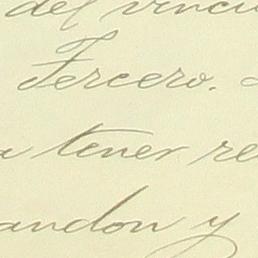 del vincu
Tercero.
a tener re
andon y